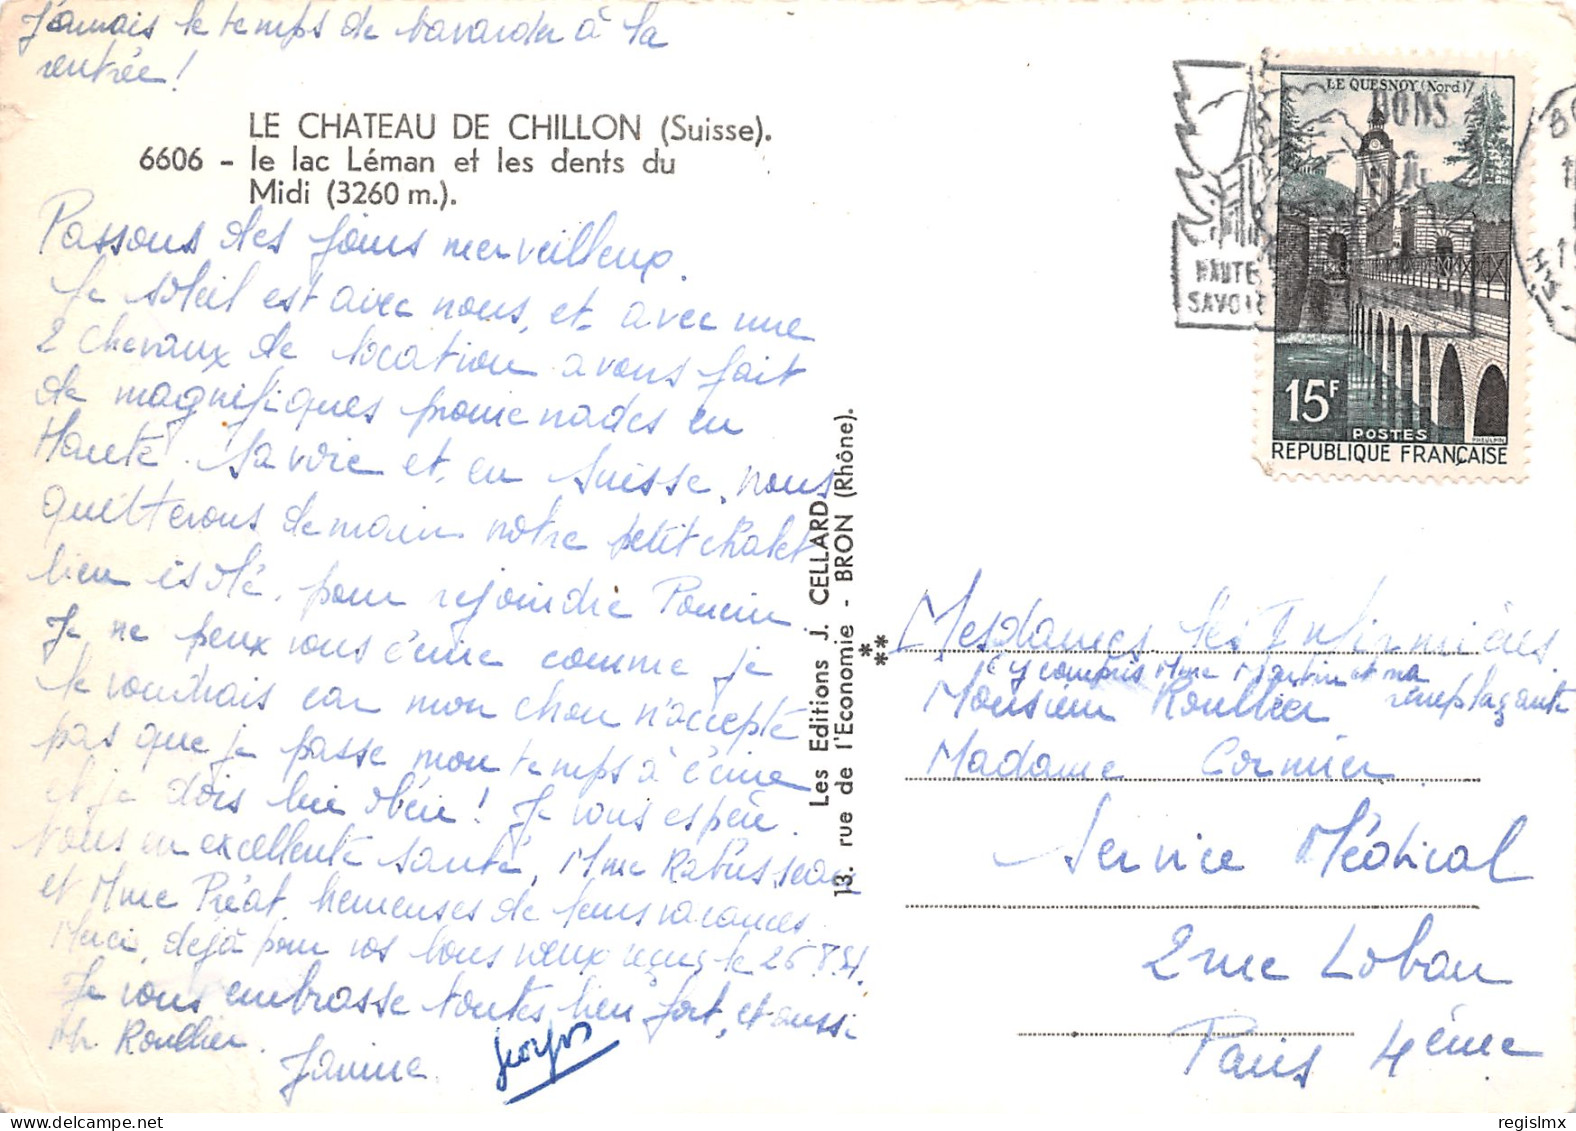 Jamais le temps de bavarder à la
rentrée!
LE CHATEAU DE CHILLON (Suisse).
6606 - le lac Léman et les dents du
Midi (3260 m.).
Passons des jours merveilleux.
Le soleil est avec nous, et avec une
2 chevaux de location avons fait
de magnifiques promenades en
Haute Savoie et en Suisse, nous
quitterons demain notre petit chalet
bien isolé, pour rejoindre
Je ne peux vous écrire comme je
le voudrais car mon chou n'accepte
pas que je passe mon temps à écrire
et je dois bien obéir! Je vous espère
tous en excellente santé, Mme
et Mme Préat heureuses de leurs vacances
Merci, déjà pour vos bons vœux reçus le 26.8.
Je vous embrasse toutes bien fort, et aussi
Mr. Roullier.
Janine
Les Editions J. CELLARD
13. rue de l'Economie - BRON (Rhône).
LE QUESNOY (Nord)
15F
POSTES
REPUBLIQUE FRANÇAISE
DONS
HAUTE
SAVOIE
Mesdames les Infirmières
(y compris Mme Martin et ma
remplaçante
Monsieur Roullier
Madame Cormier
Service Médical
2 rue Lobau
Paris 4ème
regislmx